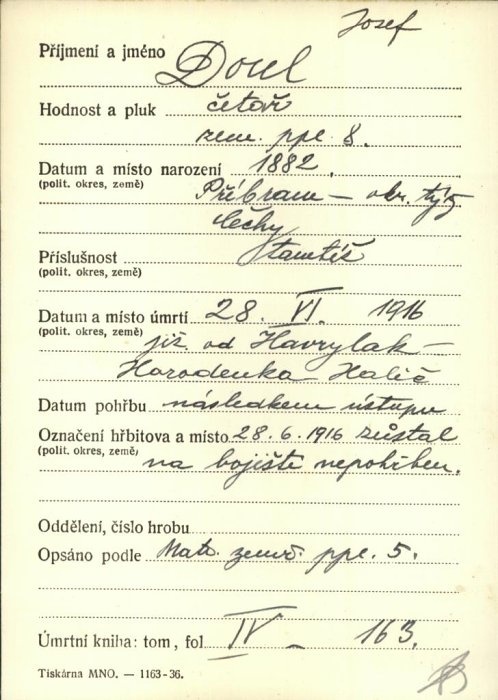 Josef
Příjmení a jméno Doul
Hodnost a pluk četař
zem. ppl. 8.
Datum a místo narození 1882.
(polit. okres, země) Příbram – okr. týž
Čechy
Příslušnost tamtéž
(polit. okres, země)
Datum a místo úmrtí 28. VI. 1916
(polit. okres, země) již. od Havrylak –
Horodenka Halič
Datum pohřbu následkem ústupu
Označení hřbitova a místo 28.6.1916 zůstal
(polit. okres, země) na bojišti nepohřben.
Oddělení, číslo hrobu
Opsáno podle Matr. zemř. ppl. 5.
Úmrtní kniha: tom, fol IV – 163.
Tiskárna MNO. — 1163-36.